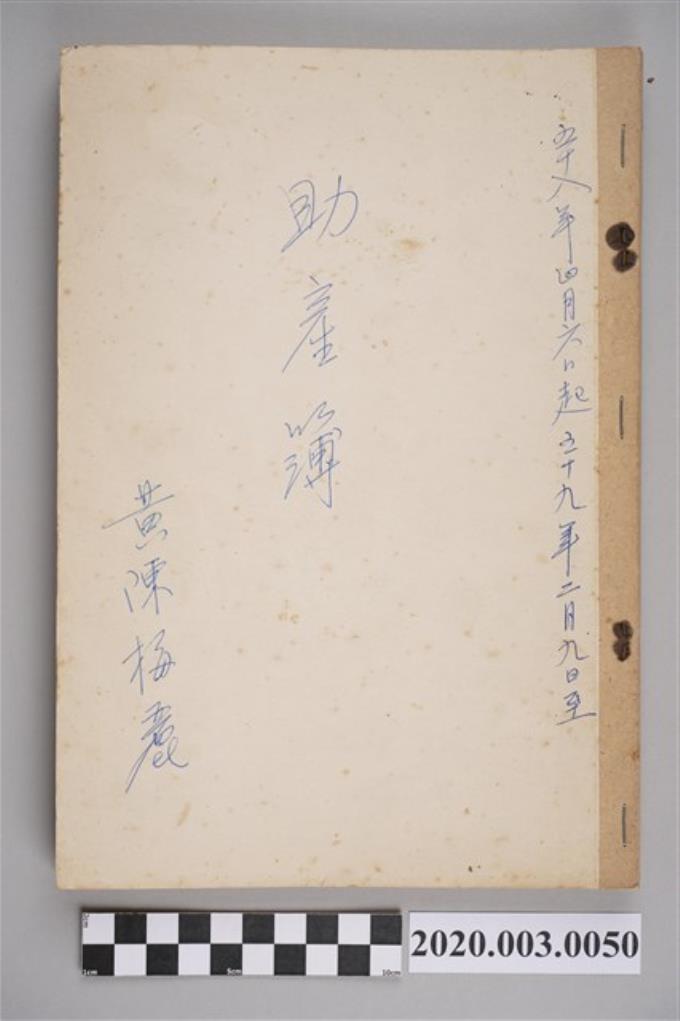 五十八年四月六日起五十九年二月九日至
助產簿
黃陳梅麗
2cm
1cm
5cm
10cm
2020.003.0050